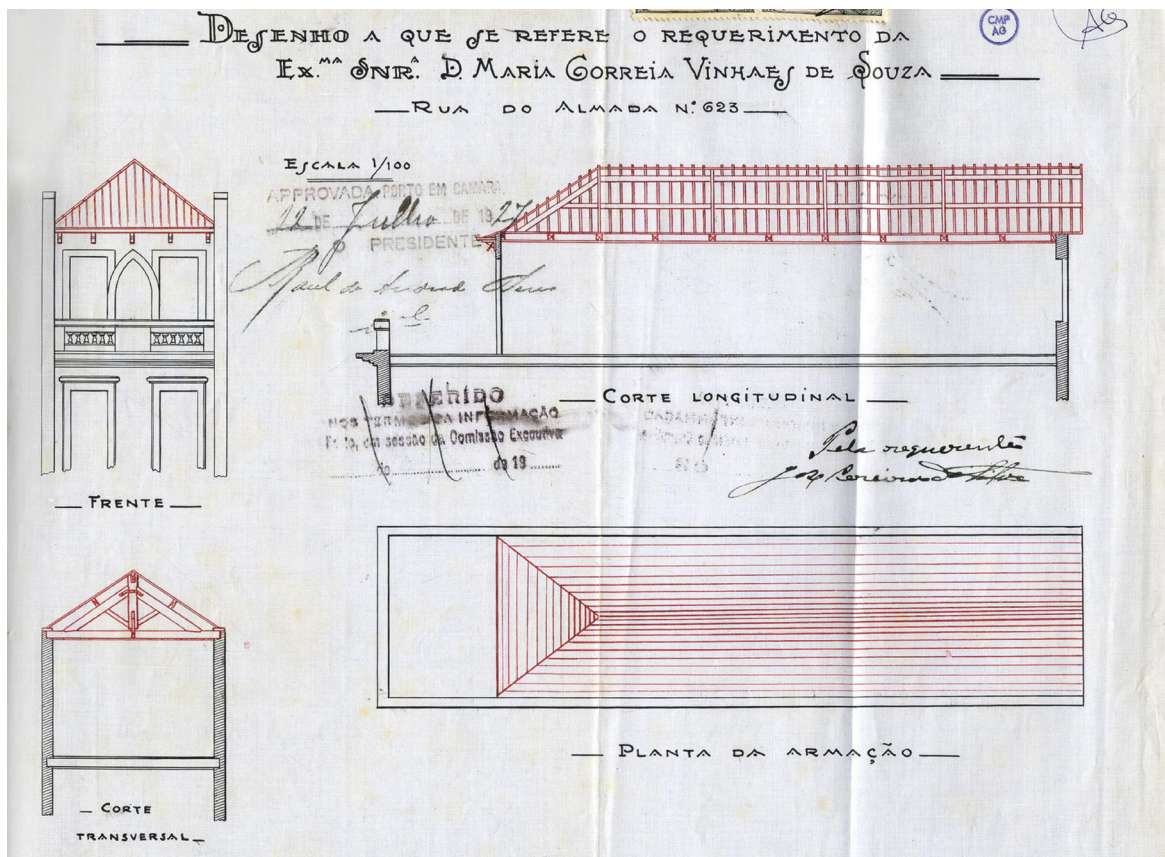 CMP
AG
DESENHO A QUE SE REFERE O REQUERIMENTO DA
EX.MA SNR.A D. MARIA CORREIA VINHAES DE SOUZA
RUA DO ALMADA N.º 623
ESCALA 1/100
APPROVADA. PORTO EM CAMARA,
12 DE Julho DE 1927
O PRESIDENTE
Raul de Andrade
DEFERIDO
NOS TERMOS DA INFORMAÇÃO
Porto, em sessão da Comissão Executiva
de de 19
CORTE LONGITUDINAL
Pela requerente
José Pereira da Silva
FRENTE
PLANTA DA ARMAÇÃO
CORTE
TRANSVERSAL